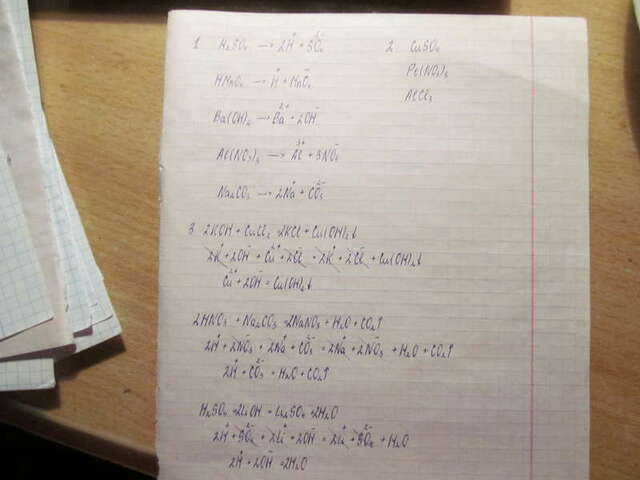 1 H₂SO₄ → 2H⁺ + SO₄²⁻
HMnO₄ → H⁺ + MnO₄⁻
Ba(OH)₂ → Ba²⁺ + 2OH⁻
Al(NO₃)₃ → Al³⁺ + 3NO₃⁻
Na₂CO₃ → 2Na⁺ + CO₃²⁻
2. CuSO₄
AlCl₃
3 2KOH + CuCl₂ 2KCl + Cu(OH)₂↓
2K⁺ + 2OH⁻ + Cu²⁺ + 2Cl⁻ = 2K⁺ + 2Cl⁻ + Cu(OH)₂↓
Cu²⁺ + 2OH⁻ = Cu(OH)₂↓
2HNO₃ + Na₂CO₃ 2NaNO₃ + H₂O + CO₂↑
2H⁺ + 2NO₃⁻ + 2Na⁺ + CO₃²⁻ = 2Na⁺ + 2NO₃⁻ + H₂O + CO₂↑
2H⁺ + CO₃²⁻ = H₂O + CO₂↑
H₂SO₄ + 2LiOH = Li₂SO₄ + 2H₂O
2H⁺ + SO₄²⁻ + 2Li⁺ + 2OH⁻ = 2Li⁺ + SO₄²⁻ + H₂O
2H⁺ + 2OH⁻ = 2H₂O